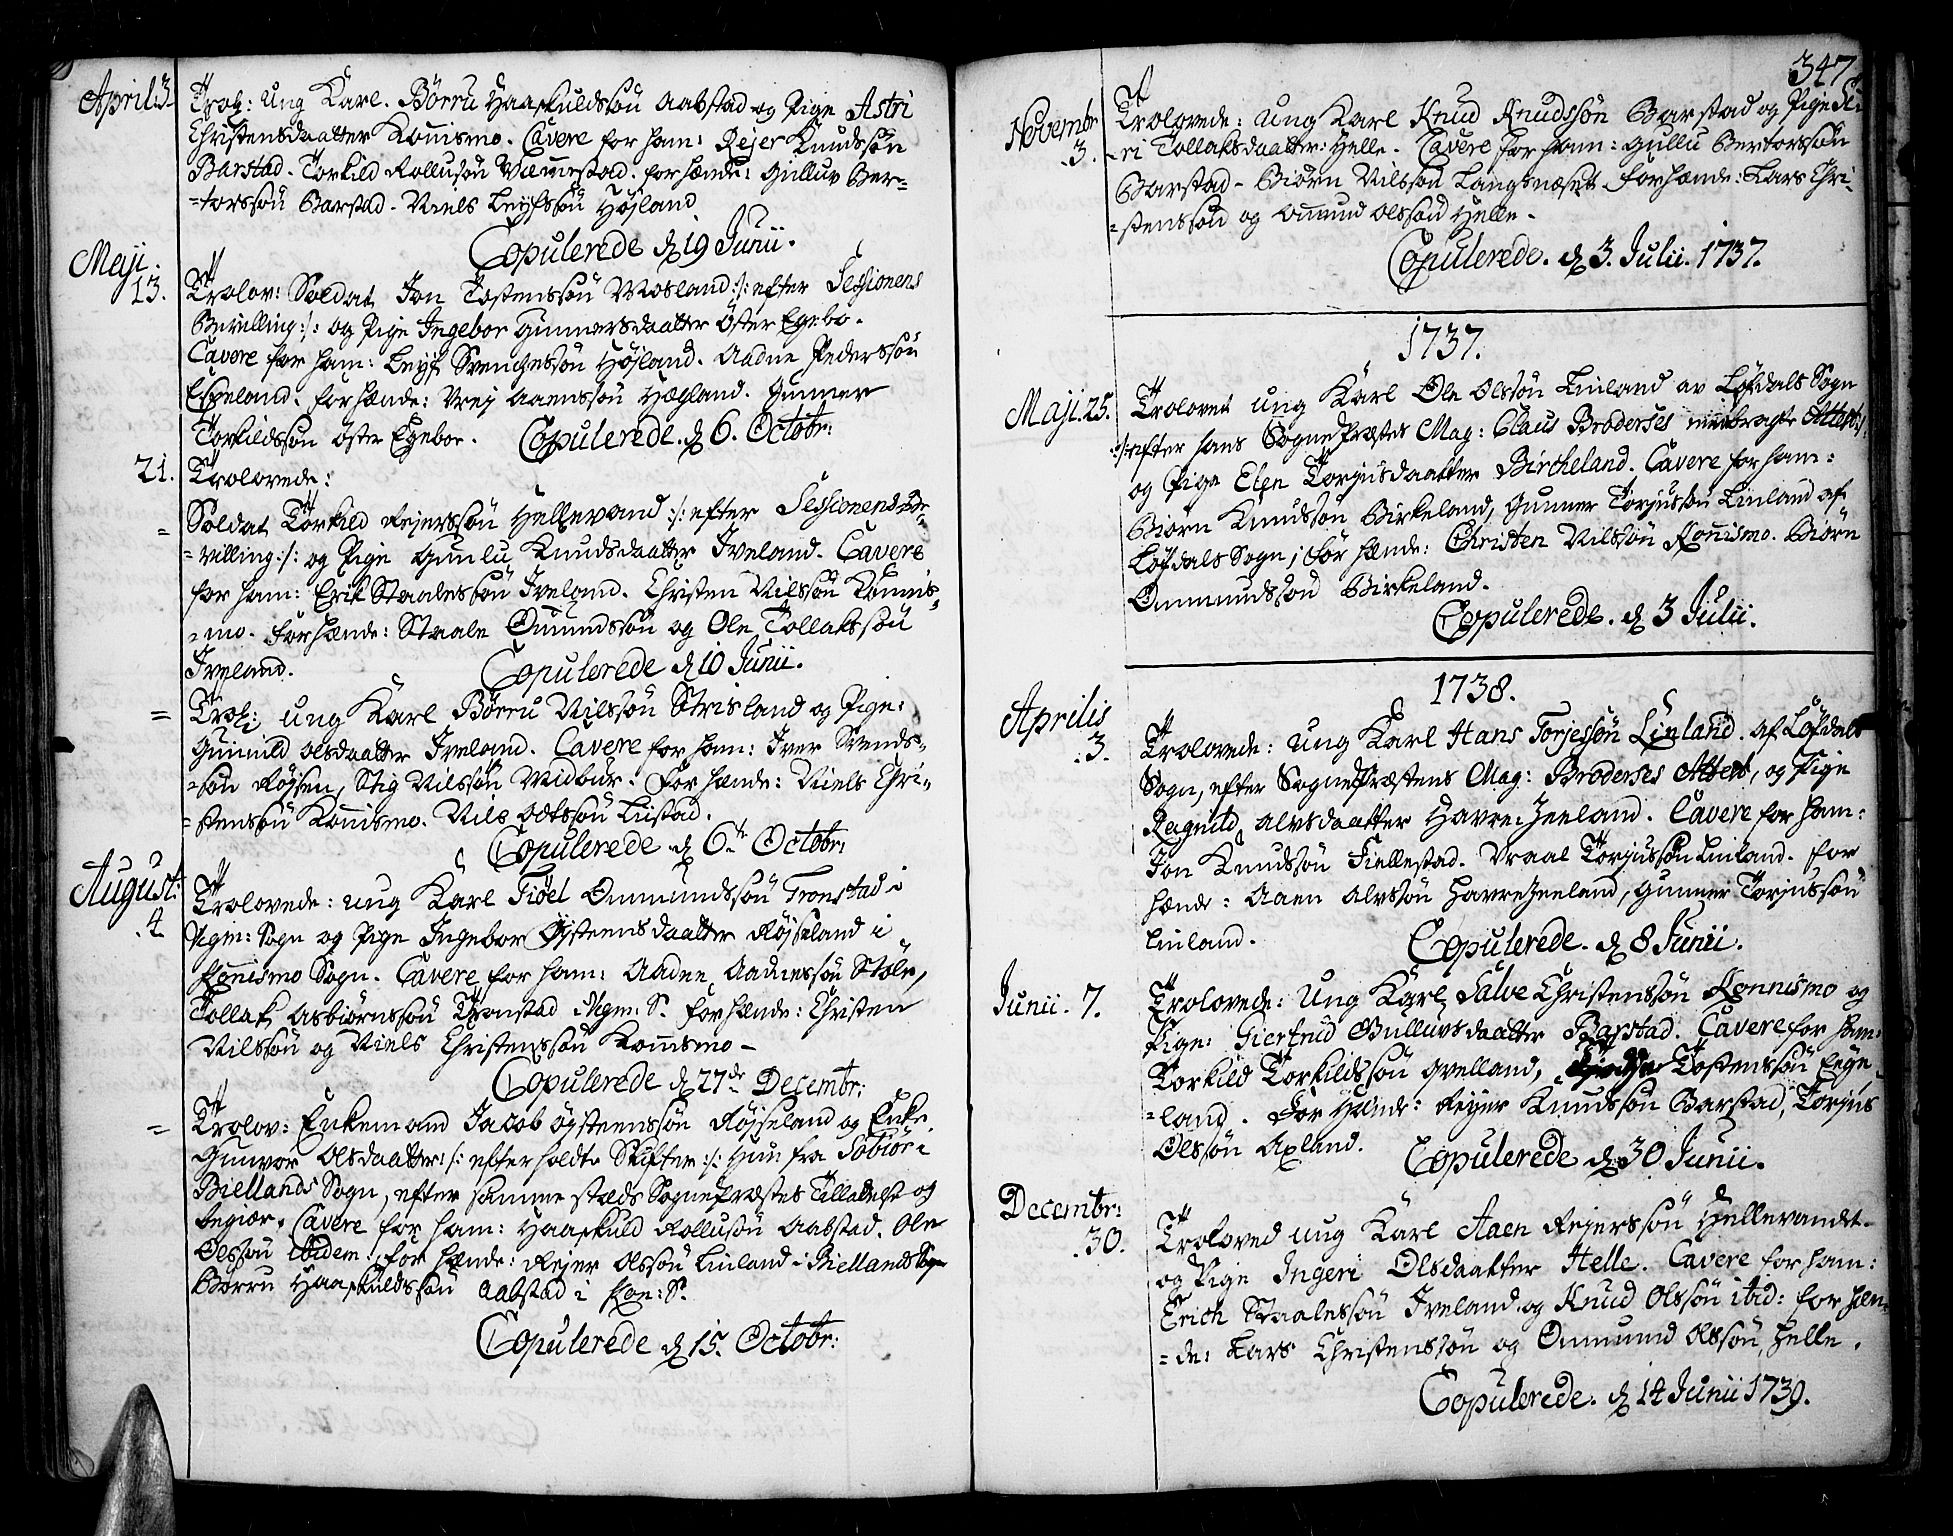 April: 3.
Trol: Ung Karl. Börru Haaskuldssøn Aabstad og Pige Astri
Christensdaatter Konnismo. Cavere for ham: Rejer Knudssøn
Barstad. Torkild Rollusøn Vannestad. for hænde: Gulluv Ber-
-torssøn Barstad. Niels Leifssøn Højland.
Copulerede d 19 Junii.
Maji.
13.
Trolov: Soldat Jon Tostenssøn Mosland :/: efter Sessionens
Bevilling :/: og Pige Ingebor Gunnersdaatter Øster Egebo.
Cavere for ham: Leyf Svenchessøn Højland. Aadne Pederssøn
Eseland. for hænde: Vrej Aaenssøn Hægland. Gunner
Torkildssøn Øster Egeboe. Copulerede. d 6. Octobr:
21.
Trolovede:
= Soldat Torkild Rejerssøn Hellevand :/: efter Sessionens Be-
-villing :/: og Pige Gunlu Knudsdaatter Iveland. Cavere
for ham: Erik Staalessøn Iveland. Christen Nilssøn Konnis-
-mo. for hænde: Staale Omundssøn og Ole Tollakssøn
Iveland. Copulerede d 10 Junii.
= Trol: ung Karl Börru Nilssøn Strisland og Pige:
Gunnild Olsdaatter Iveland. Cavere for ham: Iver Svends-
-søn Røjsen, Stig Nilssøn Midbuе: for hænde: Niels Chri-
-stenssøn Konnismo. Nils Odtssøn Liistad.
Copulerede d 6te Octobr:
August:
.4.
Trolovede: ung Karl Tiöel Ommundssøn Tronstad i
Ægm: Sogn og Pige Ingebor Øysteensdaatter Røjseland i
Konnismo Sogn. Cavere for ham: Aadne Aadnessøn Støle,
Tollak Asbiørnssøn Tronstad Ægm: S. for hænde: Christen
Nilssøn og Niels Christenssøn Konnismo -
Copulerede d 27de Decembr:
= Trolov: Enkemand Jacob Øysteenssøn Røjseland og Enke
Gunvor Olsdaatter :/: efter holdte Skifter :/: Hun fra Tobiör i
Biellands Sogn, efter samme steds SognePræstes Tilladelse og
begiær. Cavere for ham: Haaskuld Rollusøn Aabstad. Ole
Olssøn ibidem: for hænde: Rejer Olssøn Linland i Biellands Sogn
Börru Haaskuldssøn Aabstad i Kon: S.
Copulerede d 15. Octobr:
347
Novembr
.3.
Trolovede: Ung Karl Knud Knudssøn Barstad og Pige Si-
-ri Tollaksdaatter: Helle. Cavere for ham: Gullu Bertorssøn
Barstad - Biørn Nilssøn Langsnæset for hænde: Lars Chri-
-stenssøn og Omund Olssøn Helle.
Copulerede. d 3. Julii. 1737.
1737.
Maji. 25.
Trolovet ung Karl Ole Olssøn Linland av Løfdals Sogn
:/: efter hans SognePræstes Mag: Claus Broderses medbragte Attest :/:
og Pige Elen Torjusdaatter Bircheland. Cavere for ham:
Biørn Knudsøn Birkeland, Gunner Torjussøn Linland af
Løfdals Sogn; før hænde: Christen Nilssøn Konnismo. Biørn
Ommundssøn Birkeland.
Copulerede. d 3 Julii.
1738.
Aprilis
.3.
Trolovede: Ung Karl Hans Torjessøn Linland. af Løfdals
Sogn, efter SognePræstens Mag: Broderses Attest, og Pige
Ragnild Alvsdaatter Havre Jeeland. Cavere for ham:
Jon Knudsøn Fiellestad. Vraal Torjussøn Linland. for
hænde: Aaen Alvssøn HavreJeeland, Gunner Torjussøn
Linland. Copulerede. d 8 Junii.
Junii. 7.
Trolovede: Ung Karl Salve Christenssøn Konnismo og
Pige: Giertrud Gulluvsdaatter Barstad. Cavere for ham:
Torkild Torkildssøn Ovelland, Tostenssøn Eege-
-land. For Hænde: Rejer Knudssøn Barstad, Torjus
Olssøn Axland. Copulerede d 30 Junii.
Decembr:
.30.
Troloved ung Karl Aaen Rejerssøn Hellevandet.
og Pige Ingeri Olsdaatter Helle. Cavere for ham:
Erich Staalessøn Iveland. og Knud Olssøn ibid: for hæn-
-de: Lars Christenssøn og Ommund Olssøn, Helle.
Copulerede. d 14 Junii 1739.